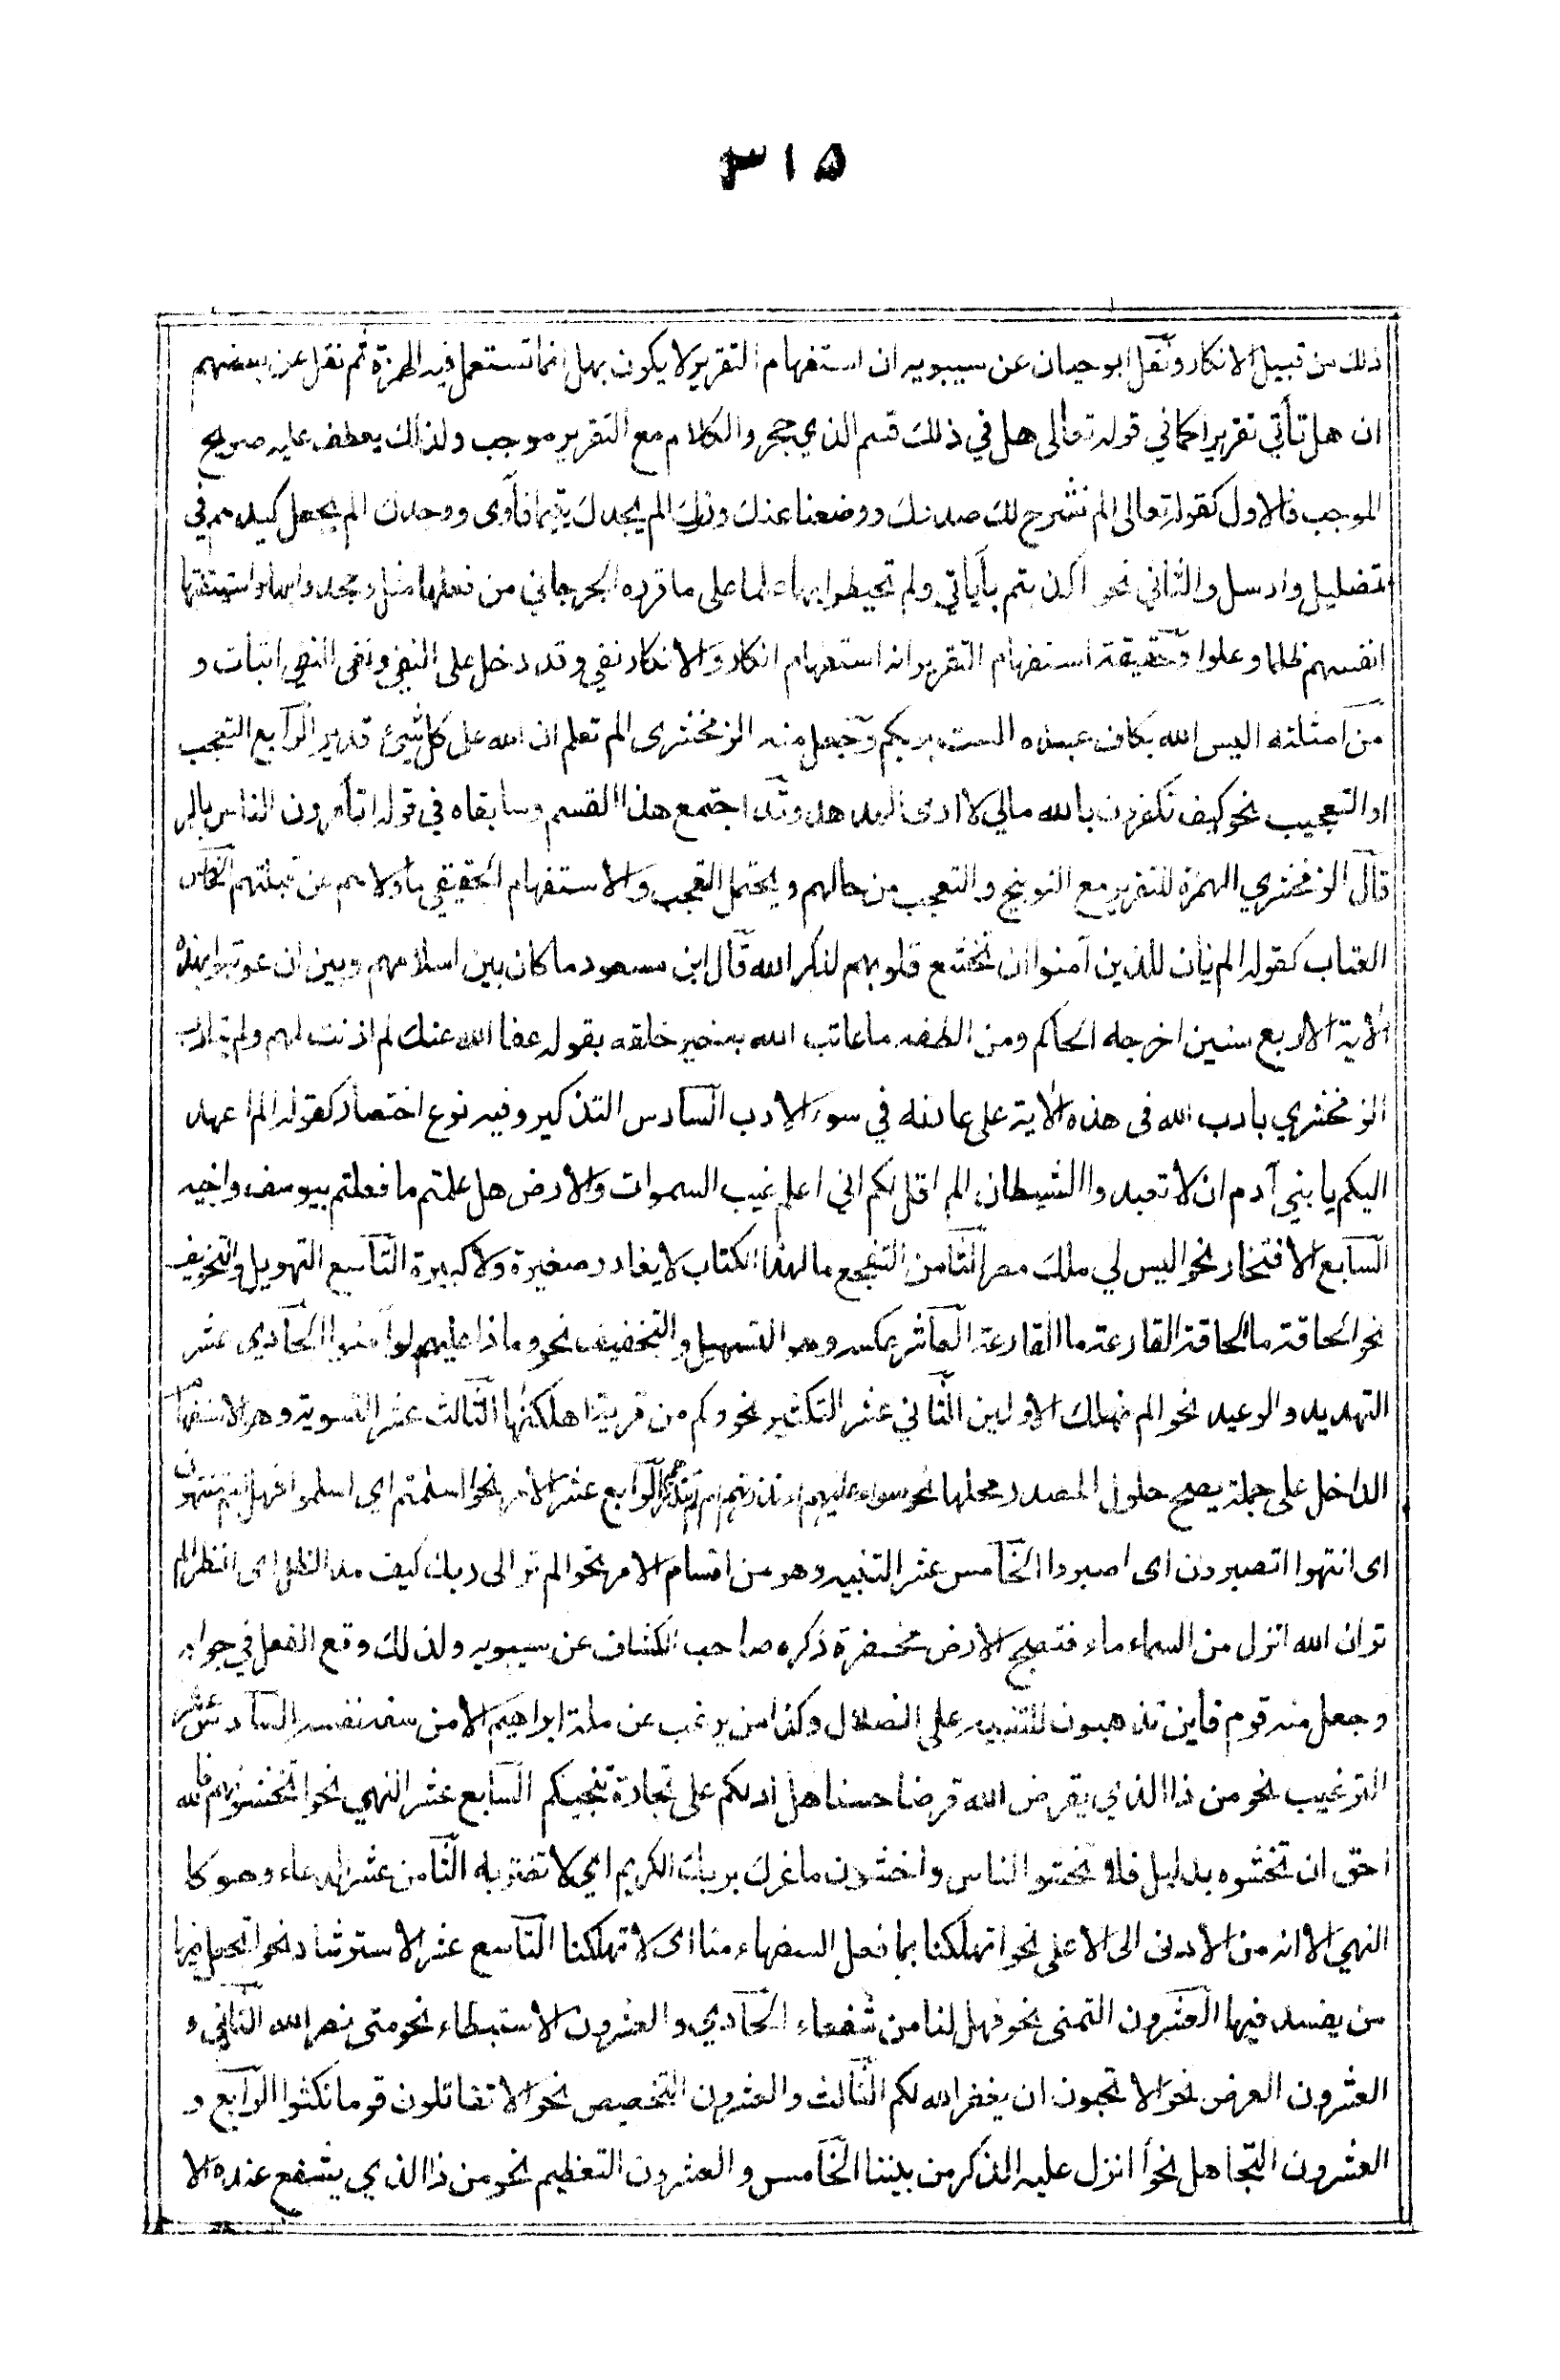 ٣١٥
ذلك من قبيل الانكار ونقل ابو حيان عن سيبويه ان استفهام التقرير لا يكون بهل انما تستعمل فيه الهمزة ثم نقل عن بعضهم
ان هل تأتي تقريرا كما في قوله تعالى هل في ذلك قسم الذي حجر والكلام مع التقرير موجب ولذلك يعطف عليه صريح
الموجب فالاول كقوله تعالى الم نشرح لك صدرك ووضعنا عنك وزرك الم يجدك يتيما فآوى ووجدك الم يجعل كيدهم في
تضليل وارسل والثاني نحو اكذبتم بآياتي ولم تحيطوا بها علما على ما قرره الجرجاني من جعلها مثل وجحدوا بها واستيقنتها
انفسهم ظلما وعلوا وحقيقة استفهام التقرير انه استفهام انكار والانكار نفي وقد دخل على النفي ونفى النفي اثبات و
من امثلته اليس الله بكاف عبده الست بربكم وجعل منه الزمخشرى الم تعلم ان الله على كل شيئ قدير الرابع التعجب
او التعجيب نحو كيف تكفرون بالله مالي لا ارى الهدهد وقد اجتمع هذا القسم وسابقاه في قوله اتأمرون الناس بالبر
قال الزمخشري الهمزة للتقرير مع التوبيخ والتعجب من حالهم ويحتمل التعجب والاستفهام الحقيقي ما ولاهم عن قبلتهم الخامس
العتاب كقوله الم يأن للذين آمنوا ان تخشع قلوبهم لذكر الله قال ابن مسعود ما كان بين اسلامهم وبين ان عوتبوا بهذه
الاية الا اربع سنين اخرجه الحاكم ومن الطفه ما عاتب الله به خير خلقه بقوله عفا الله عنك لم اذنت لهم ولم يتادب
الزمخشري بادب الله فى هذه الاية على عادته في سوء الادب السادس التذكير وفيه نوع اختصار كقوله الم اعهد
اليكم يا بني آدم ان لا تعبدوا الشيطان الم اقل لكم اني اعلم غيب السموات والارض هل علمتم ما فعلتم بيوسف واخيه
السابع الافتخار نحو اليس لي ملك مصر الثامن التفجع مالهذا الكتاب لا يغادر صغيرة ولا كبيرة التاسع التهويل والتخويف
نحو الحاقة ما الحاقة القارعة ما القارعة العاشر عكسه وهو التسهيل والتخفيف نحو وماذا عليهم لو آمنوا الحادي عشر
التهديد والوعيد نحو الم نهلك الاولين الثاني عشر التكثير نحو وكم من قرية اهلكنها الثالث عشر التسوية وهو الاستفهام
الداخل على جملة يصح حلول المصدر محلها نحو سواء عليهم ءانذرتهم ام لم تنذرهم الرابع عشر الامر نحو ااسلمتم اي اسلموا فهل انتم منتهون
اى انتهوا اتصبرون اى اصبروا الخامس عشر التنبيه وهو من اقسام الامر نحو الم تر الى ربك كيف مد الظل اى انظر الم
تر ان الله انزل من السماء ماء فتصبح الارض مخضرة ذكره صاحب الكشاف عن سيبويه ولذلك وقع الفعل في جوابه
وجعل منه قوم فأين تذهبون للتنبيه على الضلال وكذا من يرغب عن ملة ابراهيم الا من سفه نفسه السادس عشر
الترغيب نحو من ذا الذي يقرض الله قرضا حسنا هل ادلكم على تجارة تنجيكم السابع عشر النهي نحو اتخشونهم فالله
احق ان تخشوه بدليل فلا تخشوا الناس واخشون ما غرك بربك الكريم اي لا تغتر به الثامن عشر الدعاء وهو كا
النهي الا انه من الادنى الى الاعلى نحو اتهلكنا بما فعل السفهاء منا اى لا تهلكنا التاسع عشر الاسترشاد نحو اتجعل فيها
من يفسد فيها العشرون التمنى نحو فهل لنا من شفعاء الحادي والعشرون الاستبطاء نحو متى نصر الله الثاني و
العشرون العرض نحو الا تحبون ان يغفر الله لكم الثالث والعشرون التخصيص نحو الا تقاتلون قوما نكثوا الرابع و
العشرون التجاهل نحو أانزل عليه الذكر من بيننا الخامس والعشرون التعظيم نحو من ذا الذي يشفع عنده الا